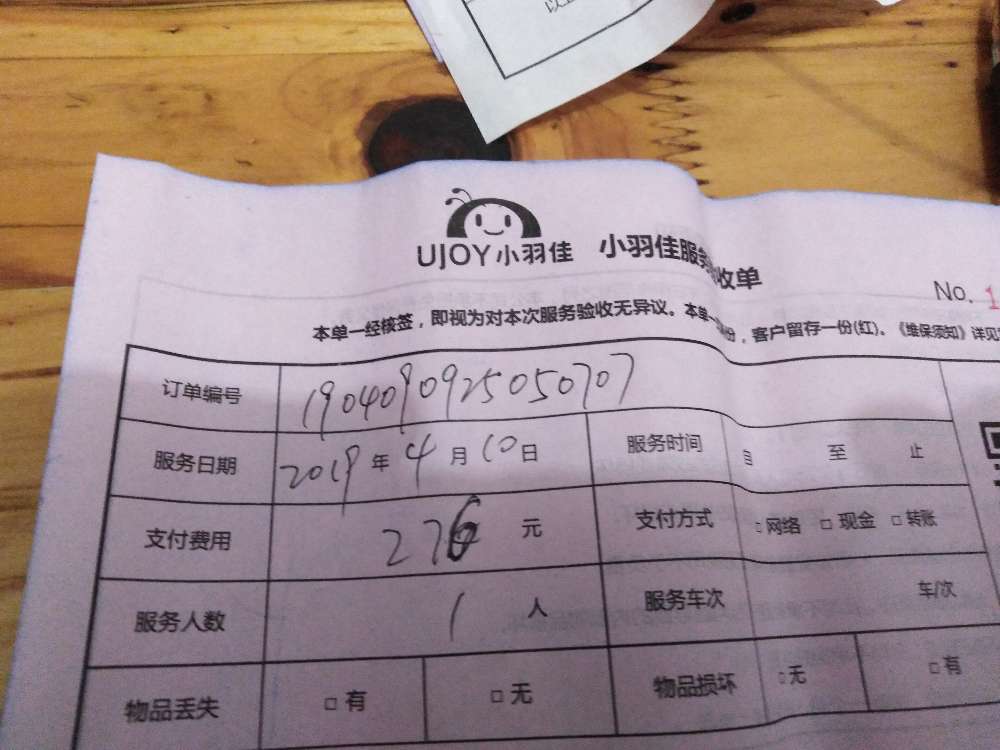 以上
UJOY小羽佳 小羽佳服务 收单
No. 1
本单一经核签，即视为对本次服务验收无异议。本单一 份，客户留存一份(红)。《维保须知》详见
订单编号 1904090925050707
服务日期 2019年4月10日 服务时间 自 至 止
支付费用 276元 支付方式 □网络 □现金 □转账
服务人数 1人 服务车次 车/次
物品丢失 □有 □无 物品损坏 □无 □有